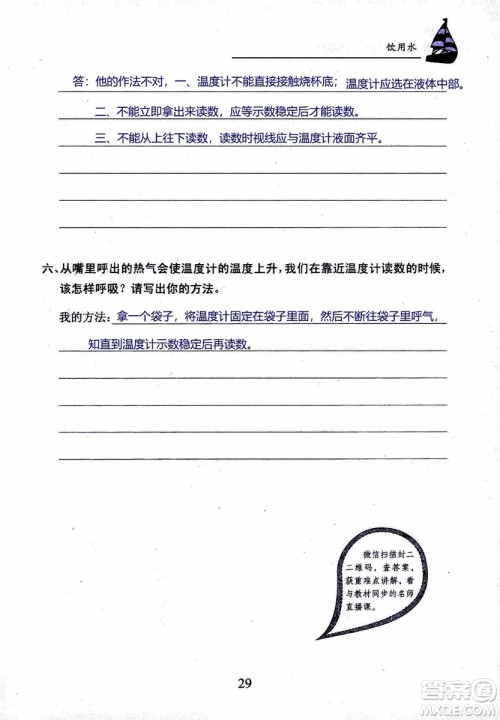 饮用水
答：他的作法不对，一、温度计不能直接接触烧杯底；温度计应选在液体中部。
二、不能立即拿出来读数，应等示数稳定后才能读数。
三、不能从上往下读数，读数时视线应与温度计液面齐平。
六、从嘴里呼出的热气会使温度计的温度上升，我们在靠近温度计读数的时候，
该怎样呼吸？请写出你的方法。
我的方法：拿一个袋子，将温度计固定在袋子里面，然后不断往袋子里呼气，
知直到温度计示数稳定后再读数。
微信扫描封二
二维码，查答案，
获重难点讲解，看
与教材同步的名师
直播课。
29
答案圈
MXQE.COM